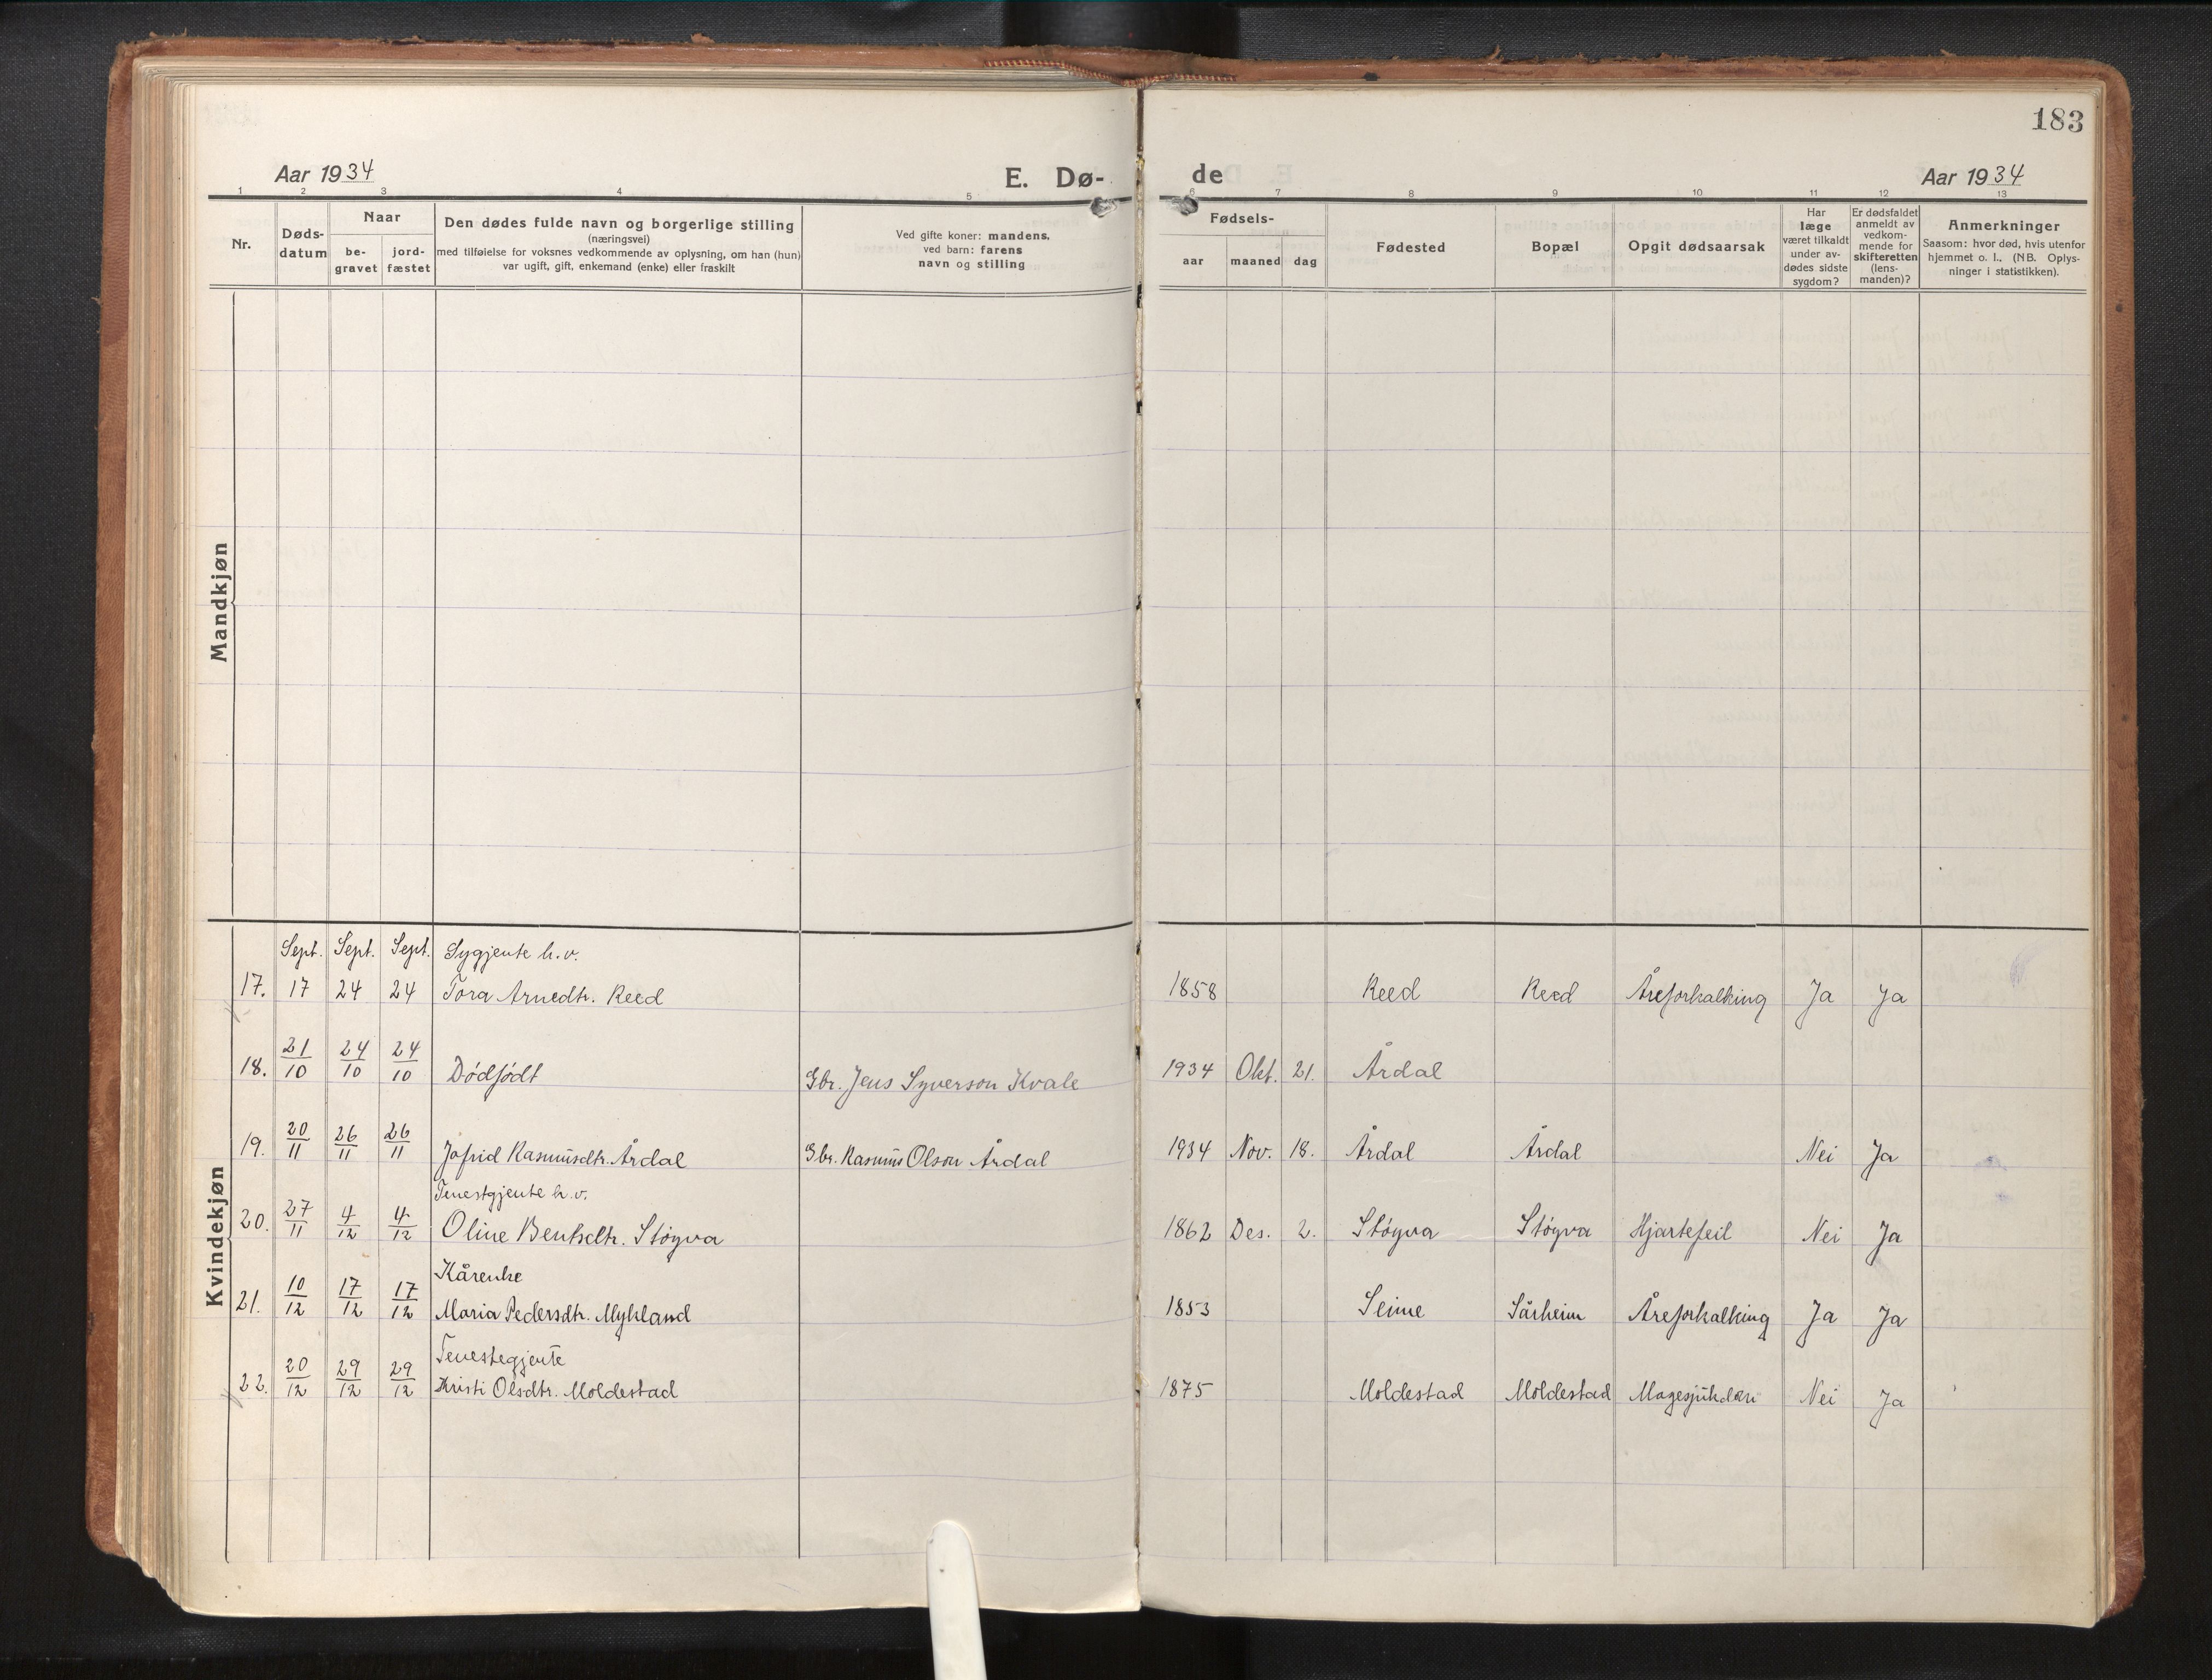 183
Aar 1934
E. Dø-
de
Aar 1934
1 2 3 4 5 6 7 8 9 10 11 12 13
Nr.
Døds-
datum
Naar
be-
gravet
jord-
fæstet
Den dødes fulde navn og borgerlige stilling
(næringsvei)
med tilføielse for voksnes vedkommende av oplysning, om han (hun)
var ugift, gift, enkemand (enke) eller fraskilt
Ved gifte koner: mandens,
ved barn: farens
navn og stilling
Fødsels-
aar
maaned
dag
Fødested
Bopæl
Opgit dødsaarsak
Har
læge
været tilkaldt
under av-
dødes sidste
sygdom?
Er dødsfaldet
anmeldt av
vedkom-
mende for
skifteretten
(lens-
manden)?
Anmerkninger
Saasom: hvor død, hvis utenfor
hjemmet o. l., (NB. Oplys-
ninger i statistikken).
Mandkjøn
Kvindekjøn
Sept. Sept. Sept. Sygjente h.v.
17. 17 24 24 Tora Arnedtr. Reed 1858 Reed Reed Åreforkalking Ja Ja
18. 21/10 24/10 24/10 Dødfødt Gbr. Jens Syverson Kvale 1934 Okt. 21. Årdal
19. 20/11 26/11 26/11 Jofrid Rasmusdtr. Årdal Gbr. Rasmus Olson Årdal 1934 Nov. 18. Årdal Årdal Nei Ja
Tenestgjente h.v.
20. 27/11 4/12 4/12 Oline Bentsdtr. Støyva 1862 Des. 2. Støyva Støyva Hjartefeil Nei Ja
Kårenke
21. 10/12 17/12 17/12 Maria Pedersdtr. Mykland 1853 Seime Sårheim Åreforkalking Ja Ja
Tenestegjente
22. 20/12 29/12 29/12 Kristi Olsdtr. Moldestad 1875 Moldestad Moldestad Magesjukdom Nei Ja